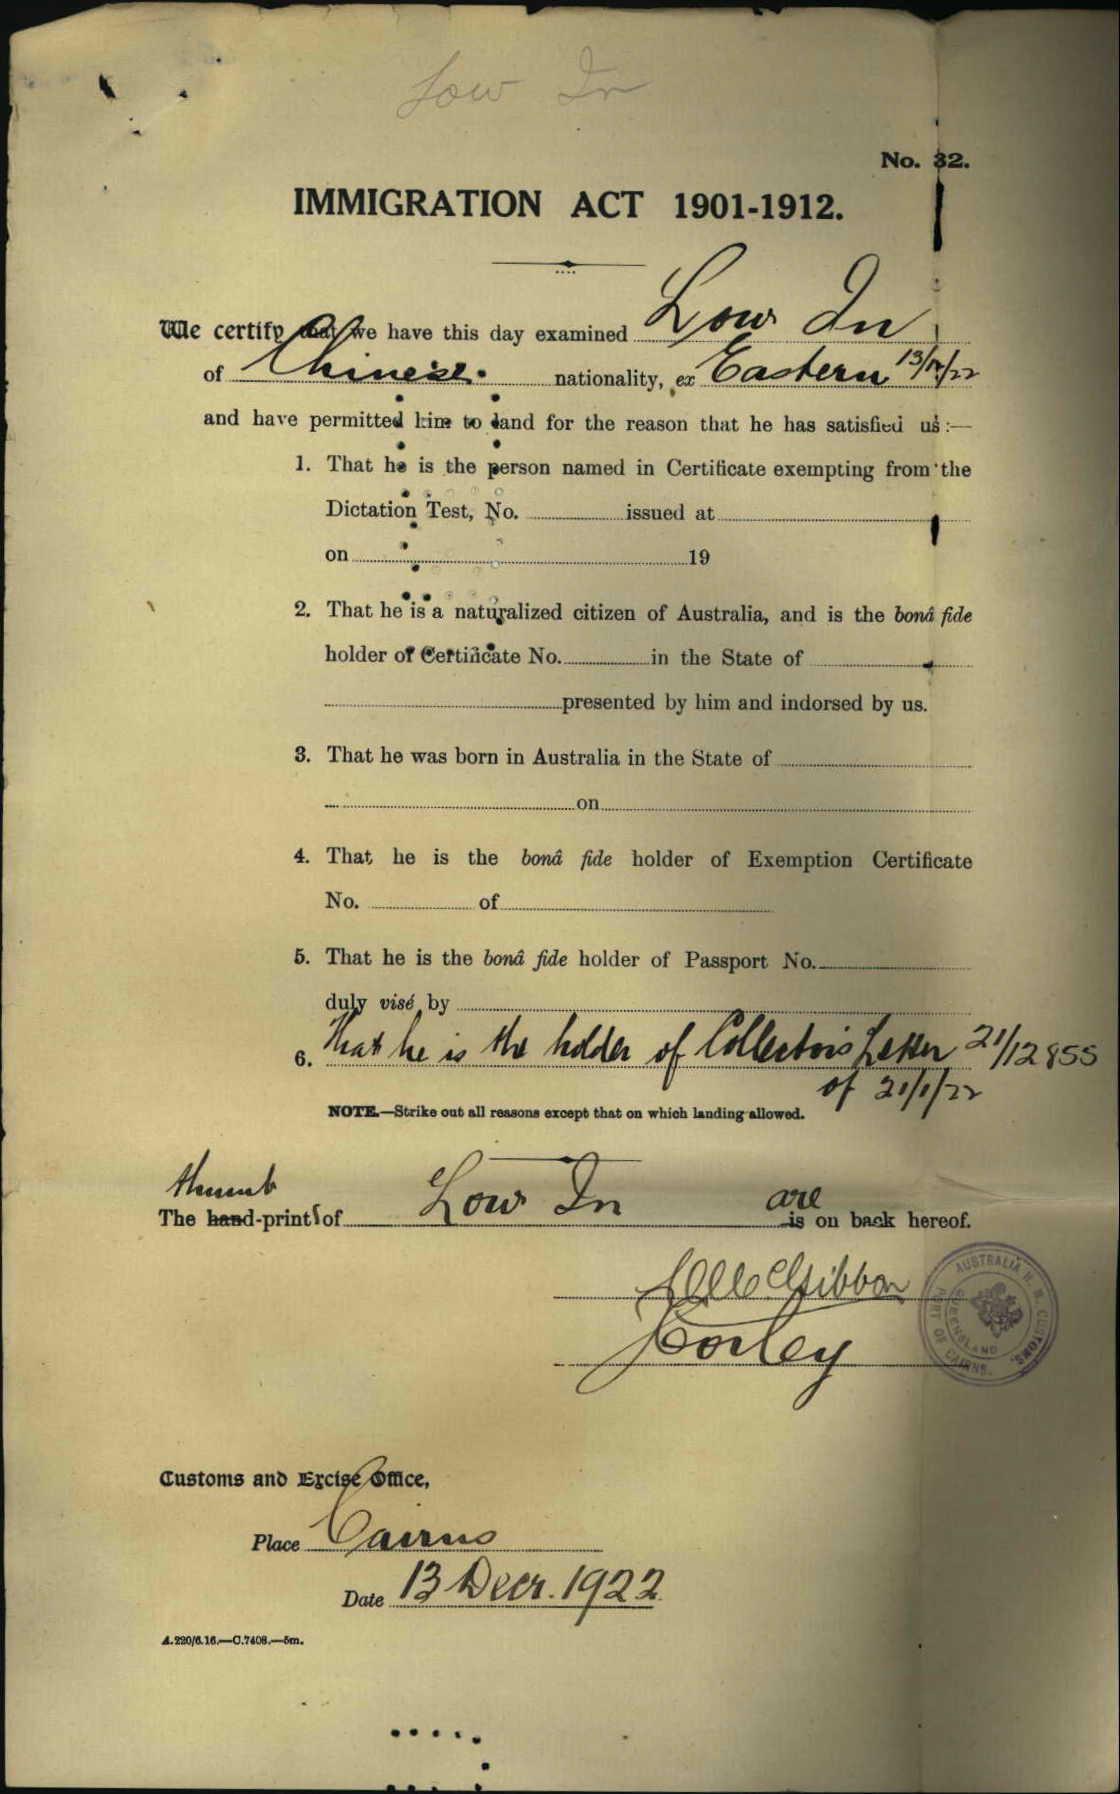 Low In
No. 32.
IMMIGRATION ACT 1901-1912.
We certify that we have this day examined Low In
of Chinese. nationality, ex Eastern 13/12/22
and have permitted him to land for the reason that he has satisfied us:—
1. That he is the person named in Certificate exempting from the
Dictation Test, No. issued at
on 19
2. That he is a naturalized citizen of Australia, and is the bonâ fide
holder of Certificate No. in the State of
presented by him and indorsed by us.
3. That he was born in Australia in the State of
on
4. That he is the bonâ fide holder of Exemption Certificate
No. of
5. That he is the bonâ fide holder of Passport No.
duly visé by
6. That he is the holder of Collector's Letter 21/12855
of 21/1/22
NOTE.—Strike out all reasons except that on which landing allowed.
thumb
The hand-prints of Low In are
is on back hereof.
McGibbon
Corley
AUSTRALIA H. M. CUSTOMS.
PORT OF CAIRNS.
QUEENSLAND
Customs and Excise Office,
Place Cairns
Date 13 Decr. 1922.
A.220/6.16.—C.7408.—5m.